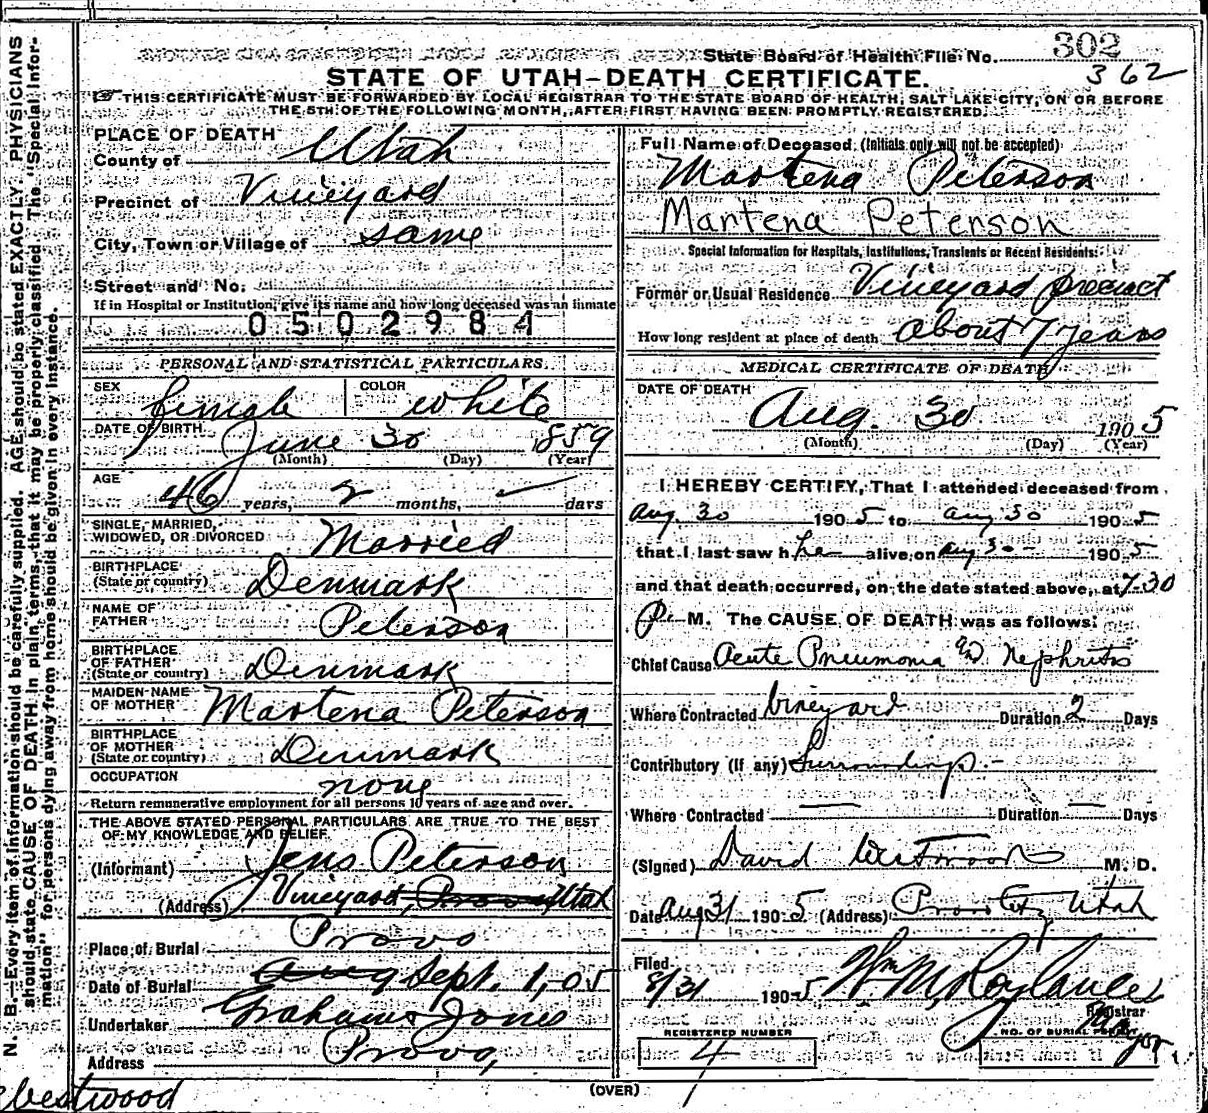 State Board of Health File No. 302
362
STATE OF UTAH—DEATH CERTIFICATE.
THIS CERTIFICATE MUST BE FORWARDED BY LOCAL REGISTRAR TO THE STATE BOARD OF HEALTH, SALT LAKE CITY, ON OR BEFORE
THE 5TH OF THE FOLLOWING MONTH, AFTER FIRST HAVING BEEN PROMPTLY REGISTERED.
N. B.—Every item of information should be carefully supplied. AGE should be stated EXACTLY. PHYSICIANS
should state CAUSE OF DEATH in plain terms, that it may be properly classified. The "Special Infor-
mation" for persons dying away from home should be given in every instance.
PLACE OF DEATH
County of Utah
Precinct of Vineyard
City, Town or Village of same
Street and No.
If in Hospital or Institution, give its name and how long deceased was an inmate
0502984
PERSONAL AND STATISTICAL PARTICULARS.
SEX female COLOR white
DATE OF BIRTH June 30 1859
(Month) (Day) (Year)
AGE 46 years, 2 months, days
SINGLE, MARRIED,
WIDOWED, OR DIVORCED Married
BIRTHPLACE
(State or country) Denmark
NAME OF
FATHER Peterson
BIRTHPLACE
OF FATHER
(State or country) Denmark
MAIDEN NAME
OF MOTHER Martena Peterson
BIRTHPLACE
OF MOTHER
(State or country) Denmark
OCCUPATION none
Return remunerative employment for all persons 10 years of age and over.
THE ABOVE STATED PERSONAL PARTICULARS ARE TRUE TO THE BEST
OF MY KNOWLEDGE AND BELIEF.
(Informant) Jens Peterson
(Address) Vineyard, Provo Utah
Place of Burial Provo
Date of Burial Aug Sept. 1, 05
Undertaker Grahams Jones
Address Provo,
Westwood
Full Name of Deceased (Initials only will not be accepted)
Martena Peterson
Martena Peterson
Special Information for Hospitals, Institutions, Transients or Recent Residents:
Former or Usual Residence Vineyard precinct
How long resident at place of death about 7 years
MEDICAL CERTIFICATE OF DEATH
DATE OF DEATH
Aug. 30 1905
(Month) (Day) (Year)
I HEREBY CERTIFY, That I attended deceased from
Aug. 30 1905 to aug 30 1905
that I last saw her alive on aug 30 1905
and that death occurred, on the date stated above, at 7-30
P. M. The CAUSE OF DEATH was as follows:
Chief Cause Acute Pneumonia and Nephritis
Where Contracted Vineyard Duration 2 Days
Contributory (If any) Surroundings
Where Contracted Duration Days
(Signed) David Westwood M. D.
Date Aug 31 1905 (Address) Provo City Utah
Filed
8/31 1905 Wm M. Roylance
Registrar
REGISTERED NUMBER NO. OF BURIAL PERMIT Mayor
4
(OVER)